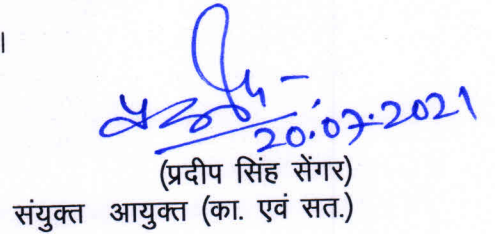 ।
20.07.2021
(प्रदीप सिंह सेंगर)
संयुक्त आयुक्त (का. एवं सत.)